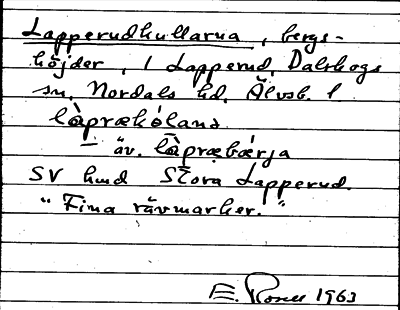 Lapperudkullarna, bergs-
höjder, i Lapperud, Dalskogs
sn. Nordals hd. Älvsb. l
låprækólana
äv. låpræbærja
SV hmd Stora Lapperud.
"Fina rävmarker."
E. Rosell 1963